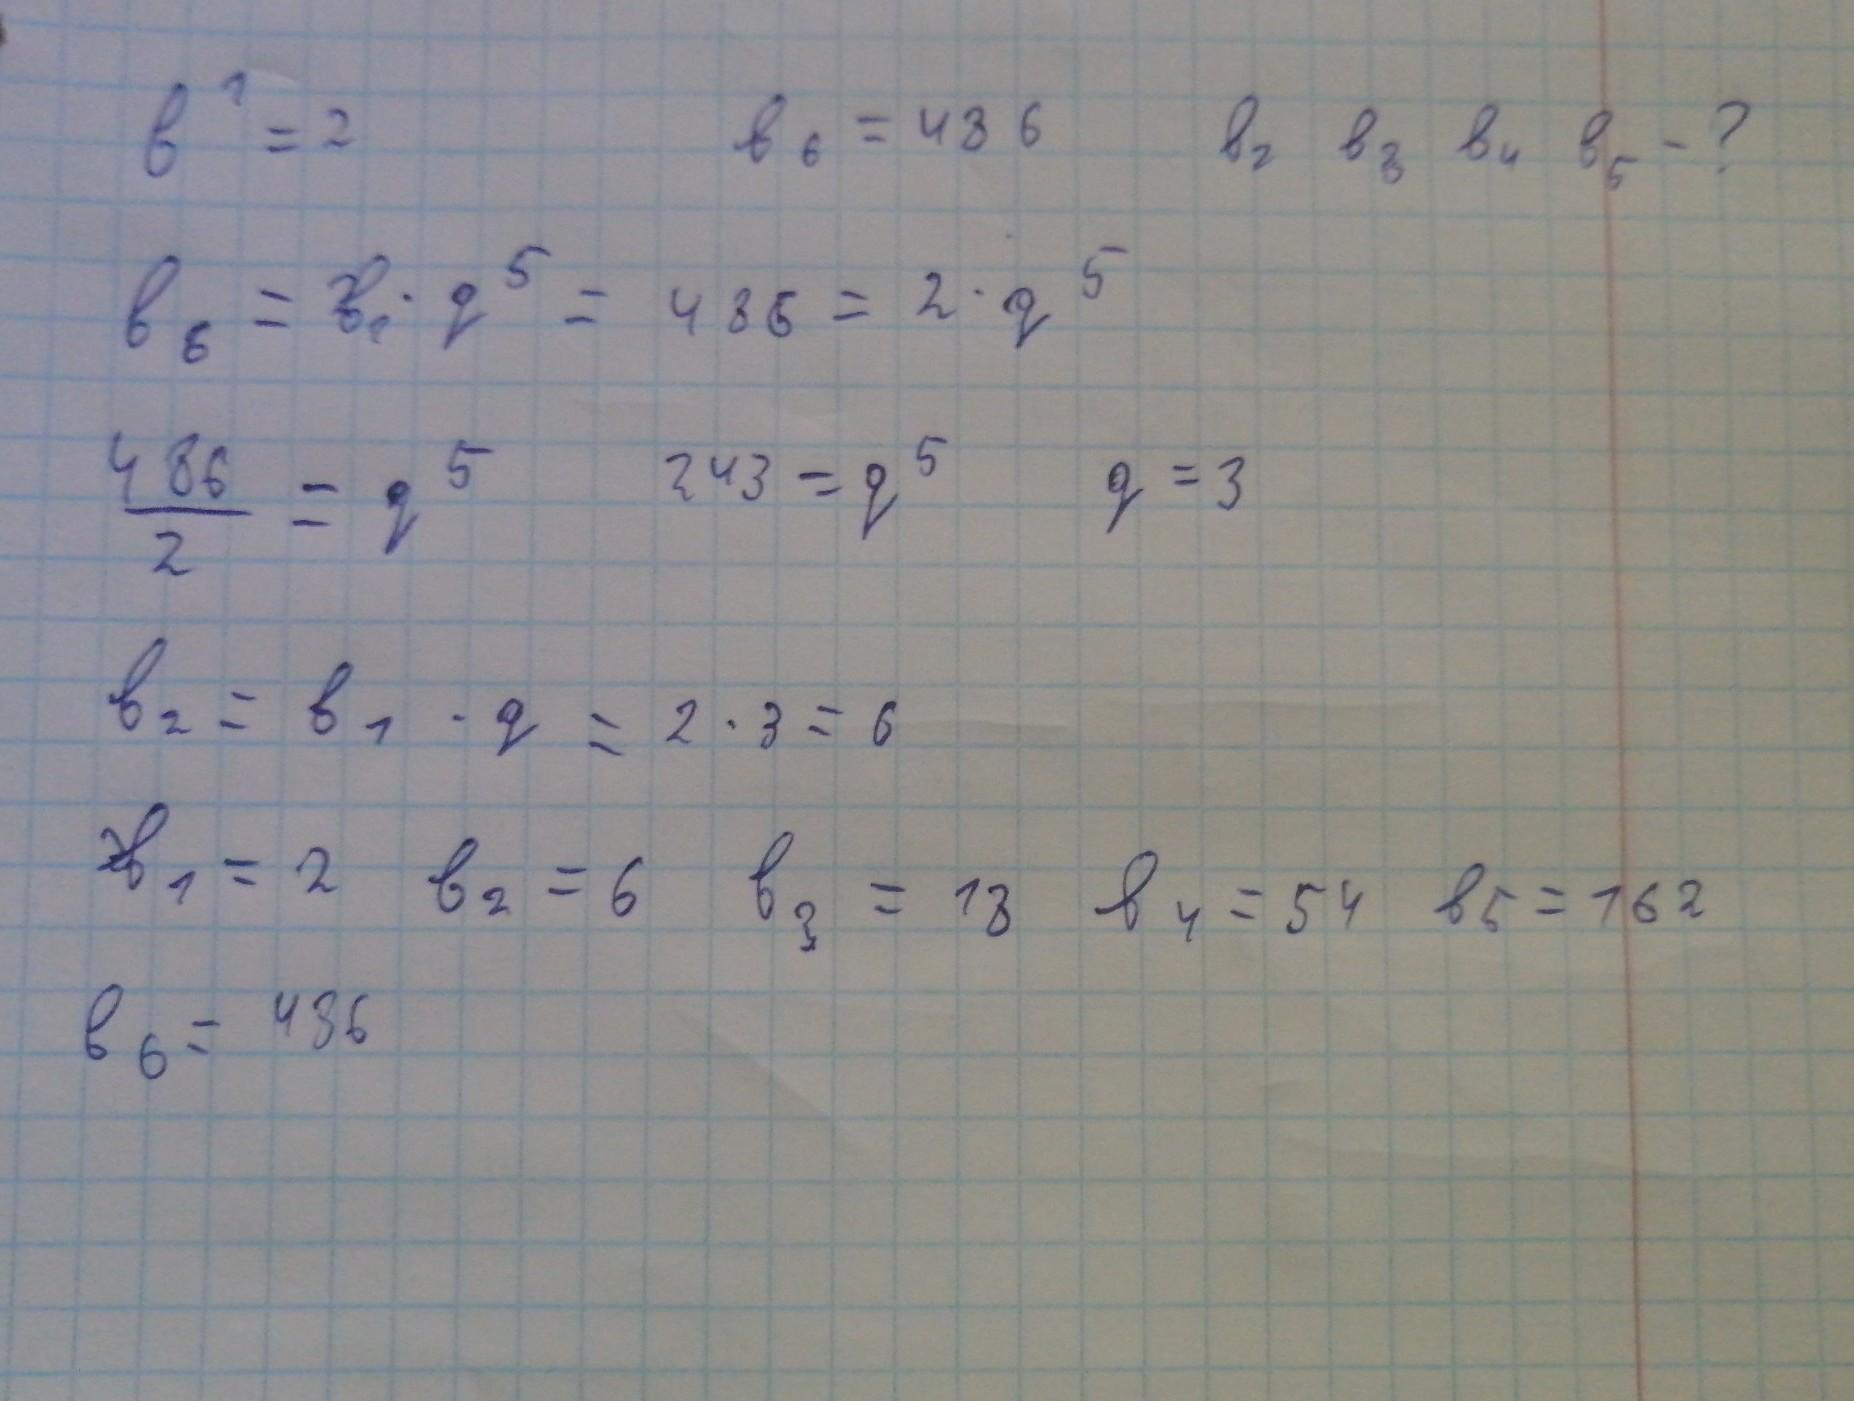 в¹ = 2 в₆ = 486 в₂ в₃ в₄ в₅ - ?
в₆ = в₁ · q⁵ = 486 = 2 · q⁵
486/2 = q⁵ 243 = q⁵ q = 3
в₂ = в₁ · q = 2 · 3 = 6
в₁ = 2 в₂ = 6 в₃ = 18 в₄ = 54 в₅ = 162
в₆ = 486